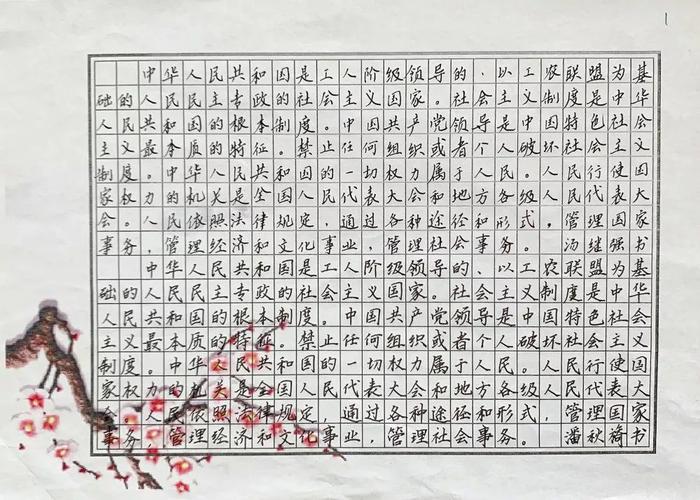 1
中华人民共和国是工人阶级领导的、以工农联盟为基
础的人民民主专政的社会主义国家。社会主义制度是中华
人民共和国的根本制度。中国共产党领导是中国特色社会
主义最本质的特征。禁止任何组织或者个人破坏社会主义
制度。中华人民共和国的一切权力属于人民。人民行使国
家权力的机关是全国人民代表大会和地方各级人民代表大
会。人民依照法律规定，通过各种途径和形式，管理国家
事务，管理经济和文化事业，管理社会事务。 汤继强书
中华人民共和国是工人阶级领导的、以工农联盟为基
础的人民民主专政的社会主义国家。社会主义制度是中华
人民共和国的根本制度。中国共产党领导是中国特色社会
主义最本质的特征。禁止任何组织或者个人破坏社会主义
制度。中华人民共和国的一切权力属于人民。人民行使国
家权力的机关是全国人民代表大会和地方各级人民代表大
会。人民依照法律规定，通过各种途径和形式，管理国家
事务，管理经济和文化事业，管理社会事务。 潘秋 书